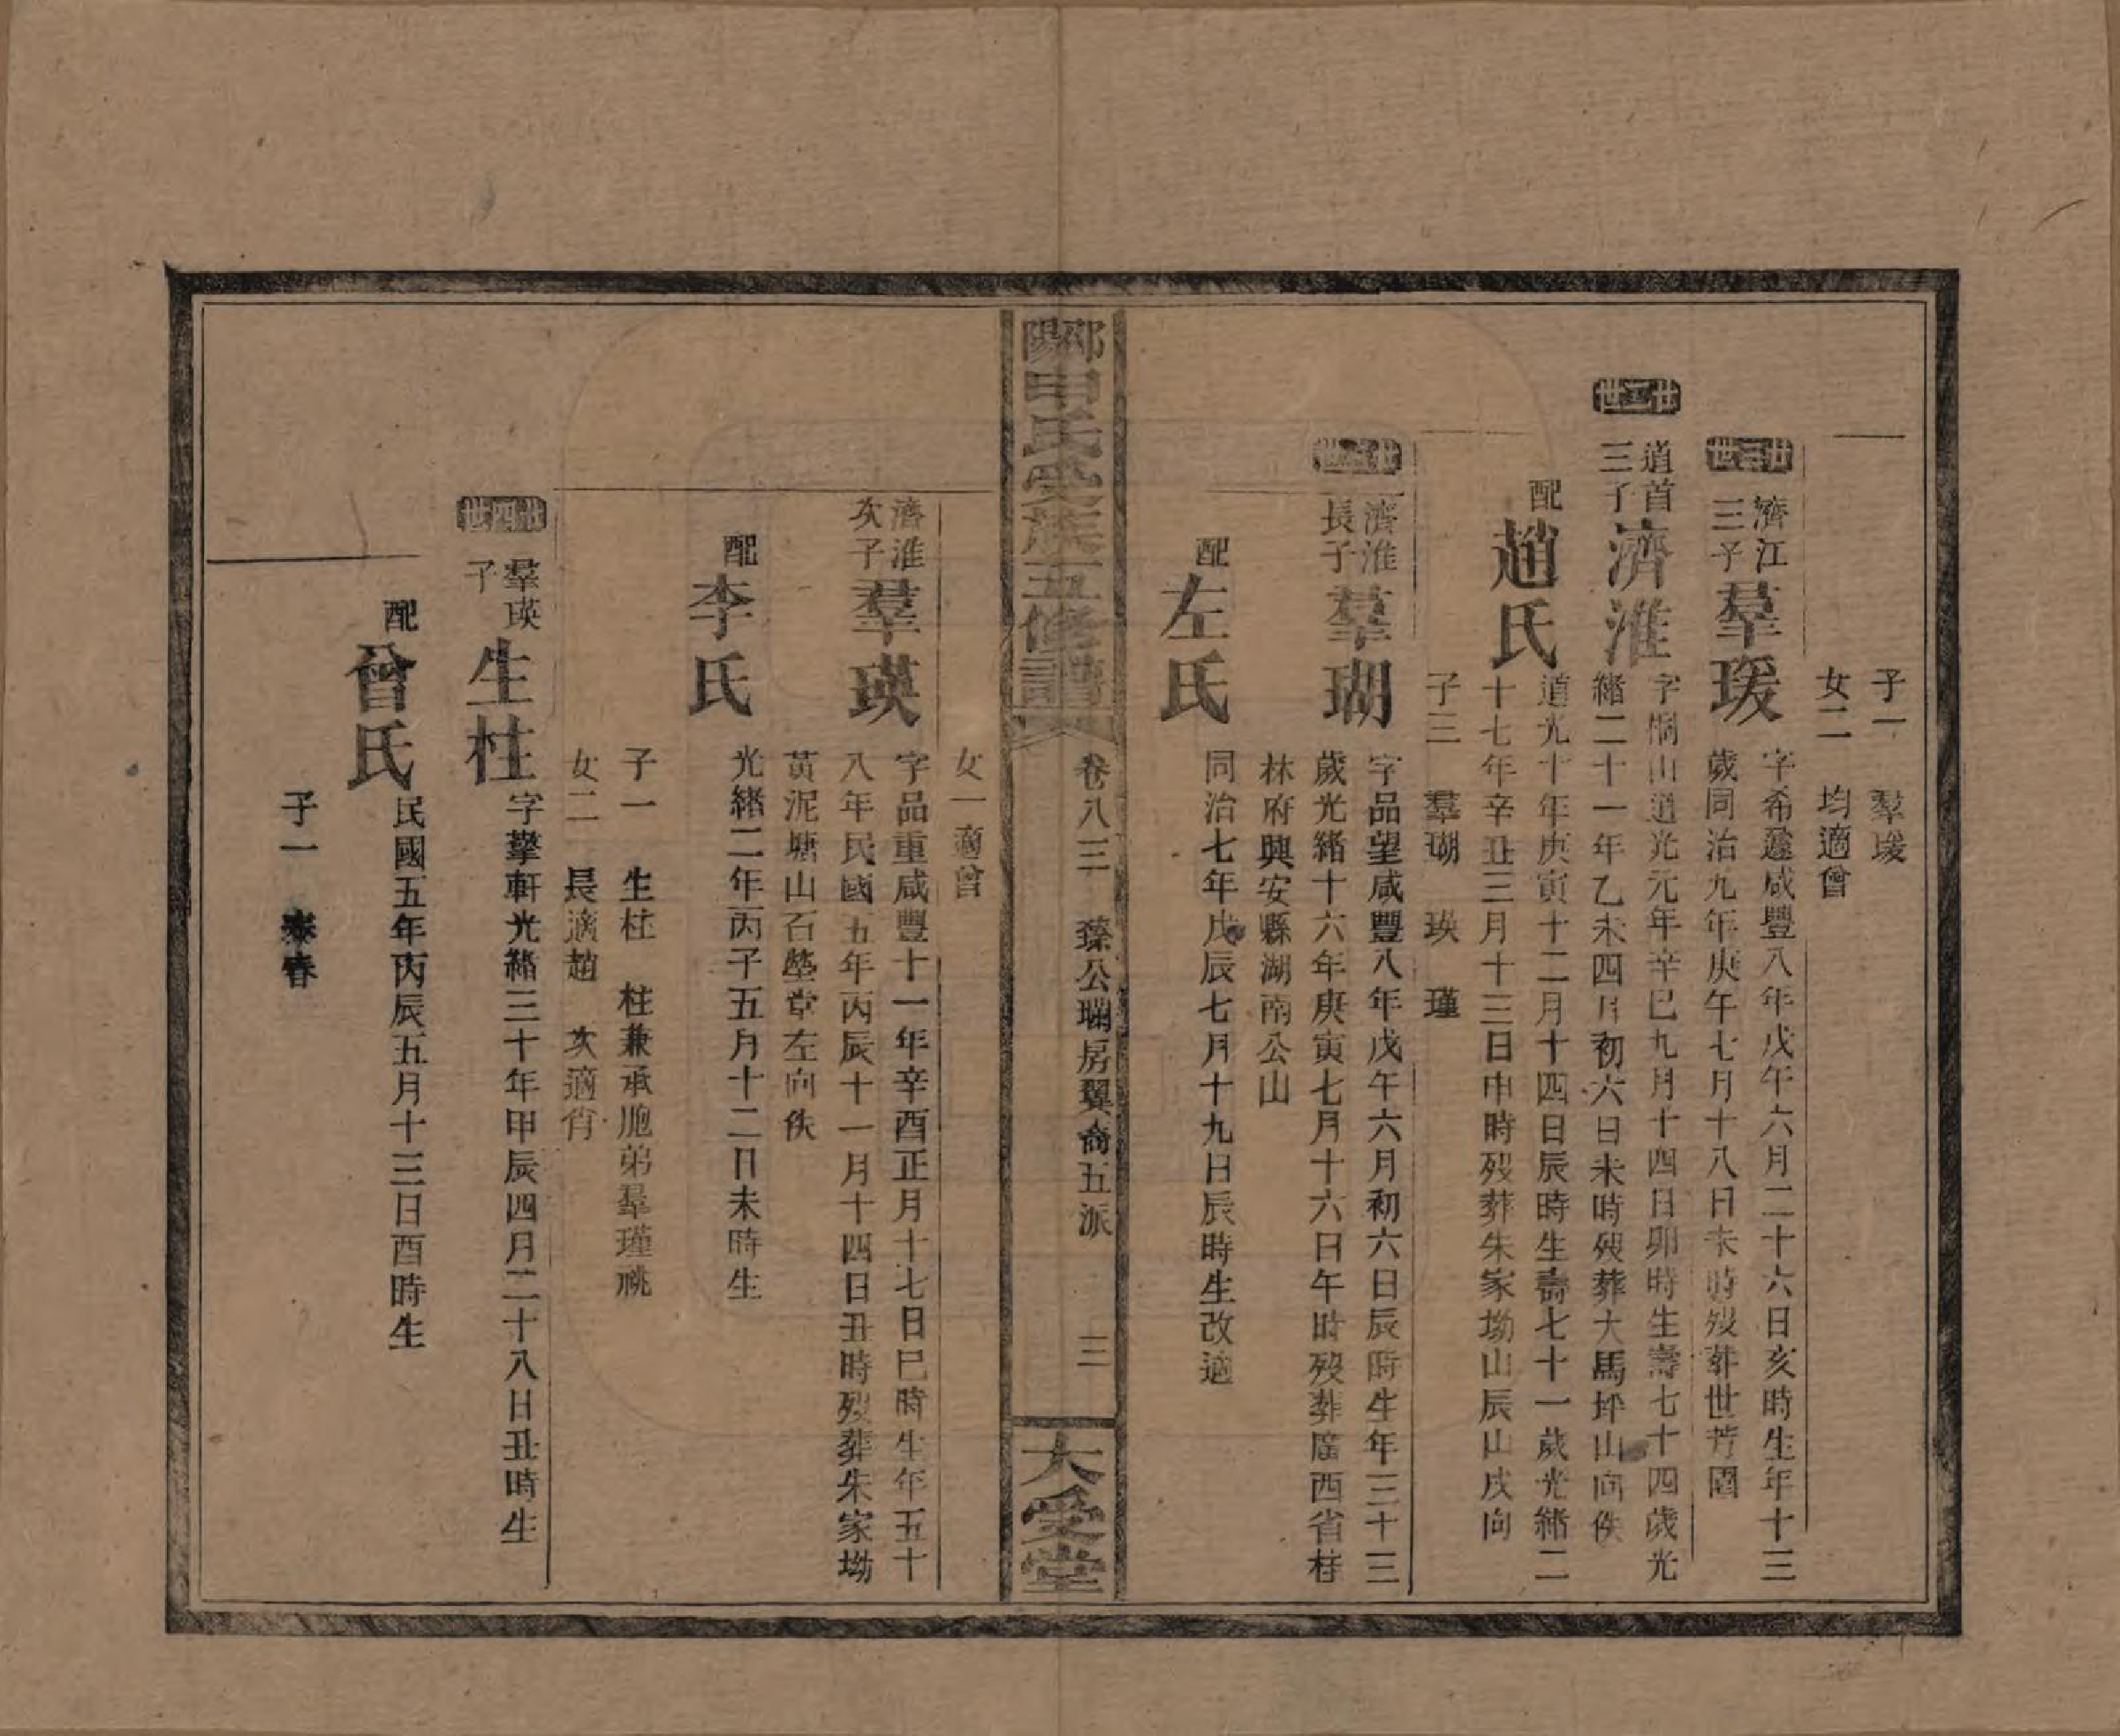 子一 羣瑗
女二 均適曾
廿三世 濟江三子 羣瑗 字希蘧咸豐八年戊午六月二十六日亥時生年十三
歲同治九年庚午七月十八日未時歿葬世芳園
廿二世 道首三子 濟淮 字桐山道光元年辛巳九月十四日卯時生壽七十四歲光
緒二十一年乙未四月初六日未時歿葬大馬坪山向佚
配趙氏 道光十年庚寅十二月十四日辰時生壽七十一歲光緒二
十七年辛丑三月十三日申時歿葬朱家坳山辰山戌向
子三 羣瑚 瑛 瑾
廿三世 濟淮長子 羣瑚 字品望咸豐八年戊午六月初六日辰時生年三十三
歲光緒十六年庚寅七月十六日午時歿葬廣西省桂
林府興安縣湖南公山
配左氏 同治七年戊辰七月十九日辰時生改適
邵陽申氏受族五修譜 卷八三 臻公瑚房翼裔五派 三 大受堂
女一適曾
濟淮次子 羣瑛 字品重咸豐十一年辛酉正月十七日巳時生年五十
八年民國五年丙辰十一月十四日丑時歿葬朱家坳
黃泥塘山石壂堂左向佚
配李氏 光緒二年丙子五月十二日未時生
子一 生柱 柱兼承胞弟羣瑾祧
女二 長適趙 次適肖
廿四世 羣瑛子 生柱 字擎軒光緒三十年甲辰四月二十八日丑時生
配曾氏 民國五年丙辰五月十三日酉時生
子一 春